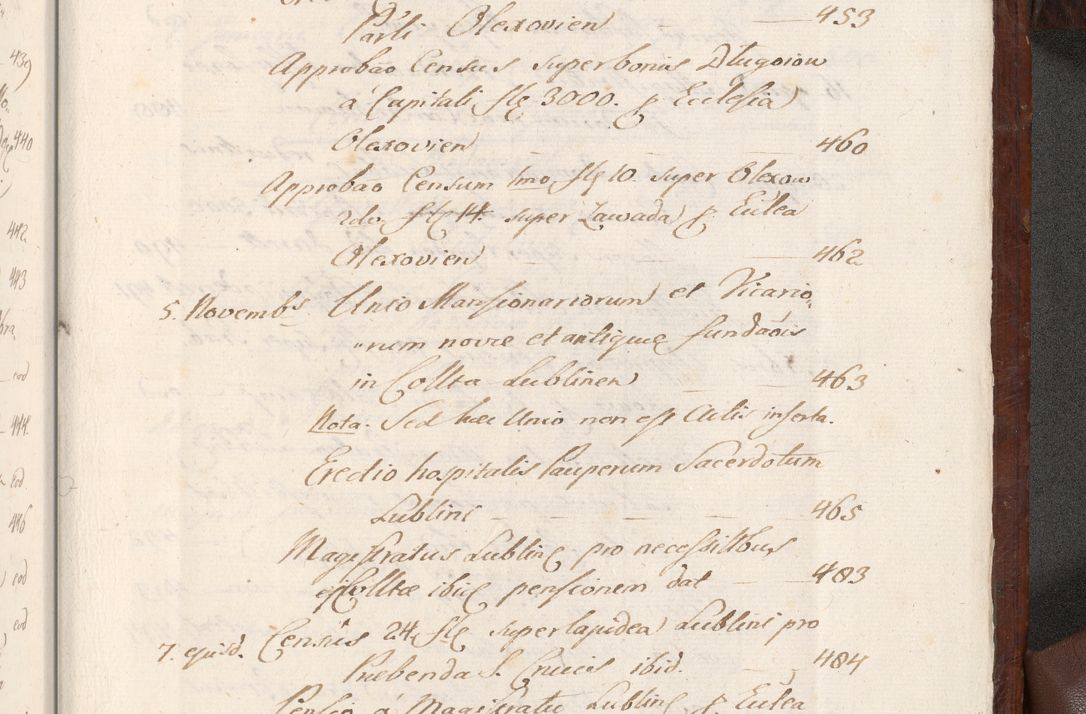 439
440
442
443
eod
444
eod
446
eod
eod
Parli Olexovien 453
Approbao Census super bonis Dlugoiow
á Capitali fle 3000. p Ecclesia
Olexovien 460
Approbao Censum 1mo fle 10. super Olexow
2do. fle 14. super Zawada p. Eccle​a
Olexovien 462
5. Novembs Unio Mansionariorum et Vicario,
"rum novæ et antiquæ fundaois
in Collta Lublinen 463
Nota. Sed hæc Unio non est Actis inserta.
Erectio hospitalis Pauperum Sacerdotum
Lublini 465
Magistratus Lubline pro necessittbus
Colltæ ibie pensionem dat 483
7. ejusd. Census 24 fle super lapidea Lublini pro
Præbenda S. Crucis ibid. 484
Censio á Magistratu Lubline p. Eccle​a